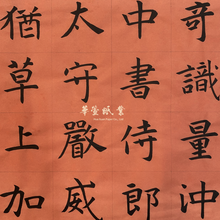 奇識量沖
中書侍郎
太守嚴威
猶草上加
華萱紙業